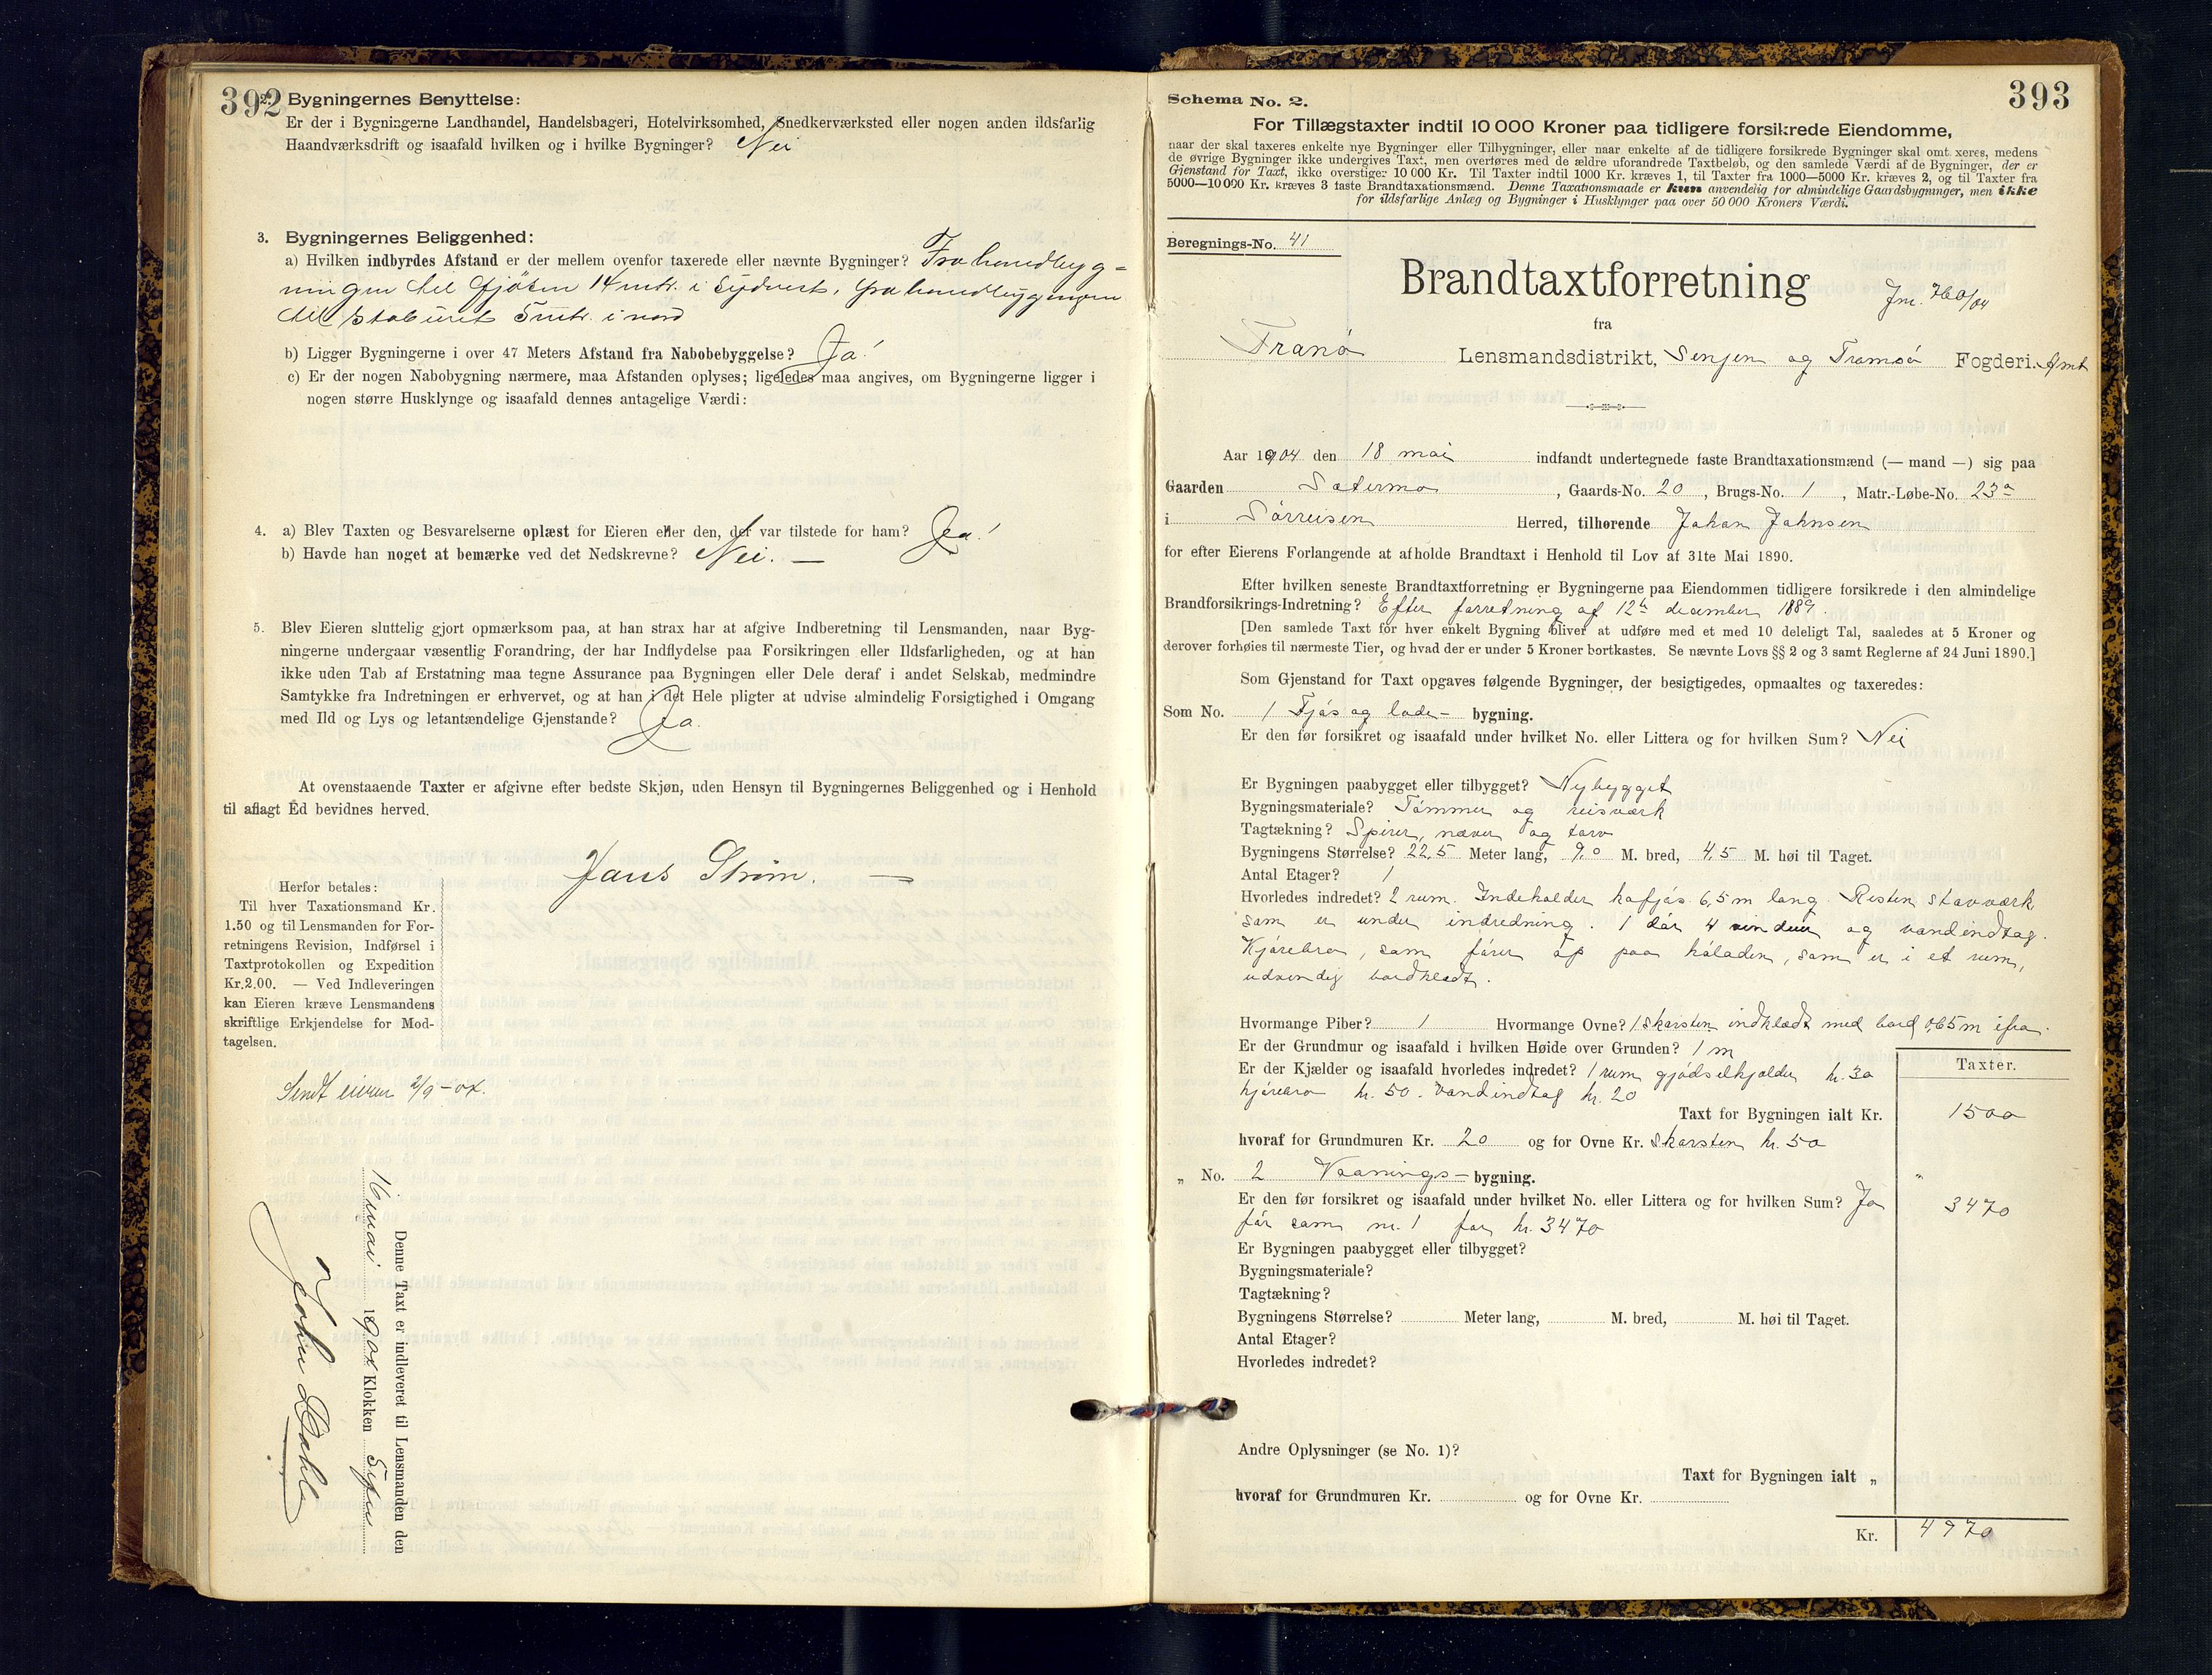 392
2. Bygningernes Benyttelse:
Er der i Bygningerne Landhandel, Handelsbageri, Hotelvirksomhed, Snedkerværksted eller nogen anden ildsfarlig
Haandværksdrift og isaafald hvilken og i hvilke Bygninger? Nei
3. Bygningernes Beliggenhed:
a) Hvilken indbyrdes Afstand er der mellem ovenfor taxerede eller nævnte Bygninger? Fra hovedbyg-
ningen til fjösen 14 mtr. i Sydvest, fra hovedbygningen
til staburet 5 mtr. i nord
b) Ligger Bygningerne i over 47 Meters Afstand fra Nabobebyggelse? Ja!
c) Er der nogen Nabobygning nærmere, maa Afstanden oplyses; ligeledes maa angives, om Bygningerne ligger i
nogen større Husklynge og isaafald dennes antagelige Værdi:
4. a) Blev Taxten og Besvarelserne oplæst for Eieren eller den, der var tilstede for ham? Ja!
b) Havde han noget at bemærke ved det Nedskrevne? Nei. —
5. Blev Eieren sluttelig gjort opmærksom paa, at han strax har at afgive Indberetning til Lensmanden, naar Byg-
ningerne undergaar væsentlig Forandring, der har Indflydelse paa Forsikringen eller Ildsfarligheden, og at han
ikke uden Tab af Erstatning maa tegne Assurance paa Bygningen eller Dele deraf i andet Selskab, medmindre
Samtykke fra Indretningen er erhvervet, og at han i det Hele pligter at udvise almindelig Forsigtighed i Omgang
med Ild og Lys og letantændelige Gjenstande? Ja.
At ovenstaaende Taxter er afgivne efter bedste Skjøn, uden Hensyn til Bygningernes Beliggenhed og i Henhold
til aflagt Ed bevidnes herved.
Jans Strøm. —
Herfor betales:
Til hver Taxationsmand Kr.
1.50 og til Lensmanden for For-
retningens Revision, Indførsel i
Taxtprotokollen og Expedition
Kr. 2.00. — Ved Indleveringen
kan Eieren kræve Lensmandens
skriftlige Erkjendelse for Mod-
tagelsen.
Sendt eieren 2/9-04.
Denne Taxt er indleveret til Lensmanden den
16 mai 1904 Klokken
John Dahl
393
Schema No. 2.
For Tillægstaxter indtil 10 000 Kroner paa tidligere forsikrede Eiendomme,
naar der skal taxeres enkelte nye Bygninger eller Tilbygninger, eller naar enkelte af de tidligere forsikrede Bygninger skal omtaxeres, medens
de øvrige Bygninger ikke undergives Taxt, men overføres med de ældre uforandrede Taxtbeløb, og den samlede Værdi af de Bygninger, der er
Gjenstand for Taxt, ikke overstiger 10 000 Kr. Til Taxter indtil 1000 Kr. kræves 1, til Taxter fra 1000—5000 Kr. kræves 2, og til Taxter fra
5000—10 000 Kr. kræves 3 faste Brandtaxationsmænd. Denne Taxationsmaade er kun anvendelig for almindelige Gaardsbygninger, men ikke
for ildsfarlige Anlæg og Bygninger i Husklynger paa over 50 000 Kroners Værdi.
Beregnings-No. 41
Brandtaxtforretning
Jnr. 760/04
fra
Tranö Lensmandsdistrikt, Senjen og Tromsö Fogderi. Amt
Aar 1904 den 18 mai indfandt undertegnede faste Brandtaxationsmænd (— mand —) sig paa
Gaarden Sætermo, Gaards-No. 20, Brugs-No. 1, Matr.-Løbe-No. 23a
i Sörreisen Herred, tilhørende Johan Johnsen
for efter Eierens Forlangende at afholde Brandtaxt i Henhold til Lov af 31te Mai 1890.
Efter hvilken seneste Brandtaxtforretning er Bygningerne paa Eiendommen tidligere forsikrede i den almindelige
Brandforsikrings-Indretning? Efter forretning af 12te december 1889.
[Den samlede Taxt for hver enkelt Bygning bliver at udføre med et med 10 deleligt Tal, saaledes at 5 Kroner og
derover forhøies til nærmeste Tier, og hvad der er under 5 Kroner bortkastes. Se nævnte Lovs §§ 2 og 3 samt Reglerne af 24 Juni 1890.]
Som Gjenstand for Taxt opgaves følgende Bygninger, der besigtigedes, opmaaltes og taxeredes:
Som No. 1 Fjös og lade- bygning.
Er den før forsikret og isaafald under hvilket No. eller Littera og for hvilken Sum? Nei
Er Bygningen paabygget eller tilbygget? Nybygget
Bygningsmateriale? Tömmer og reisværk
Tagtækning? Spirer, næver og torv
Bygningens Størrelse? 22,5 Meter lang, 9,0 M. bred, 4,5 M. høi til Taget.
Antal Etager? 1
Hvorledes indredet? 2 rum. Indeholder kofjös 6,5 m lang. Resten stavværk
som er under indredning. 1 dör 4 vinduer og vandindtag.
Kjörebro, som förer op paa höladen, som er i et rum,
udvendig bordklædt.
Hvormange Piber? 1 Hvormange Ovne? 1 skorsten indklædt med bord 0,65 m ifra.
Er der Grundmur og isaafald i hvilken Høide over Grunden? 1 m
Er der Kjælder og isaafald hvorledes indredet? 1 rum gjödselkjelder kr. 30
kjörebro kr. 50. Vandindtag kr. 20
Taxter.
Taxt for Bygningen ialt Kr. 1500
hvoraf for Grundmuren Kr. 20 og for Ovne Kr. Skorsten kr. 50
„ No. 2 Vaanings- bygning. „
Er den før forsikret og isaafald under hvilket No. eller Littera og for hvilken Sum? Ja 3470
för som nr. 1 for kr. 3470
Er Bygningen paabygget eller tilbygget?
Bygningsmateriale?
Tagtækning?
Bygningens Størrelse? Meter lang, M. bred, M. høi til Taget.
Antal Etager?
Hvorledes indredet?
Andre Oplysninger (se No. 1)?
Taxt for Bygningen ialt „
hvoraf for Grundmuren Kr. og for Ovne Kr.
Kr. 4970